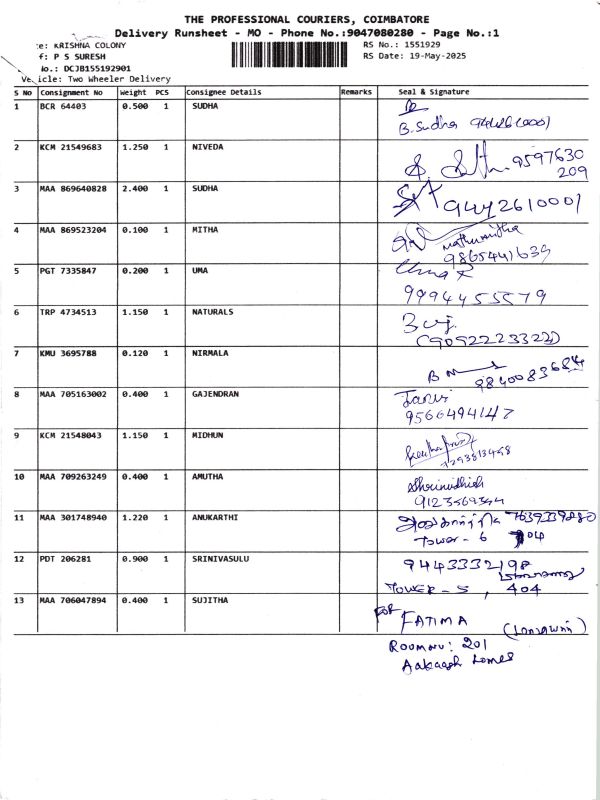 THE PROFESSIONAL COURIERS, COIMBATORE
Delivery Runsheet - MO - Phone No.:9047080280 - Page No.:1
e: KRISHNA COLONY
RS No.: 1551929
f: P S SURESH
RS Date: 19-May-2025
No.: DCJB155192901
Vehicle: Two Wheeler Delivery
S No Consignment No Weight PCS Consignee Details Remarks Seal & Signature
1 BCR 64403 0.500 1 SUDHA
B.Sudha 9442610001
2 KCM 21549683 1.250 1 NIVEDA
9597630
209
3 MAA 869640828 2.400 1 SUDHA
9442610001
4 MAA 869523204 0.100 1 MITHA
Mathumitha
9865441639
5 PGT 7335847 0.200 1 UMA
Uma R
9994455579
6 TRP 4734513 1.150 1 NATURALS
(9092223322)
7 KMU 3695788 0.120 1 NIRMALA
9840083684
8 MAA 705163002 0.400 1 GAJENDRAN
9566494147
9 KCM 21548043 1.150 1 MIDHUN
7293813458
10 MAA 709263249 0.400 1 AMUTHA
Shrinidhish
9123569354
11 MAA 301748940 1.220 1 ANUKARTHI
7639339880
Tower - 6 704
12 PDT 206281 0.900 1 SRINIVASULU
9443332198
TOWER - 5, 404
13 MAA 706047894 0.400 1 SUJITHA
For FATIMA
ROOM NO: 201
Aakaash Homes